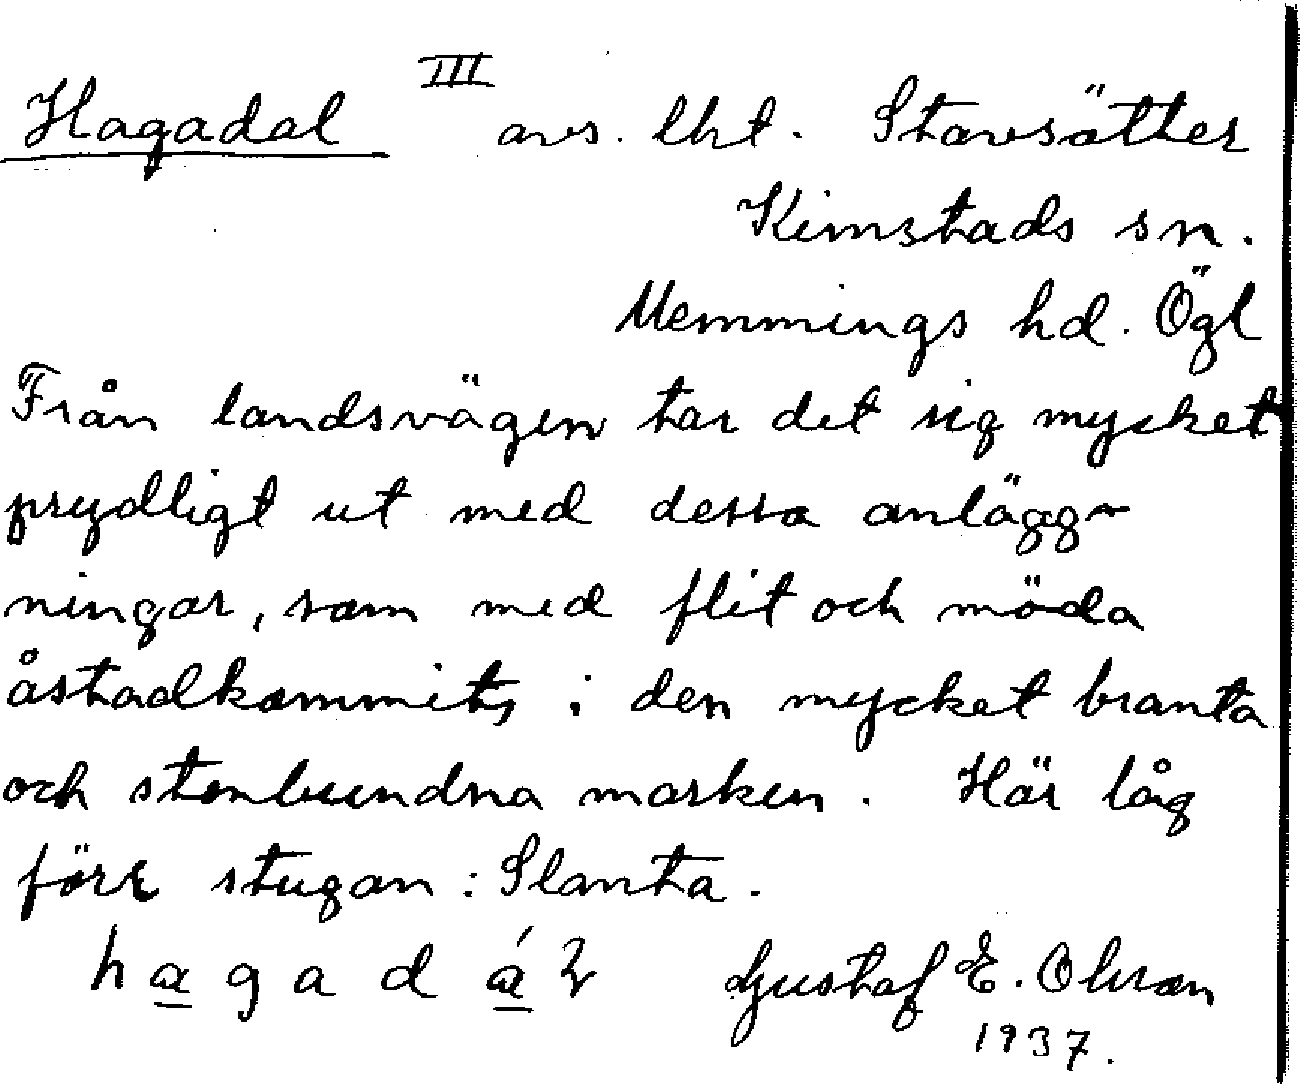 Hagadal III avs. lht. Stavsätter
Kimstads sn.
Memmings hd. Ögl
Från landsvägen tar det sig mycket
prydligt ut med dessa anlägg-
ningar, som med flit och möda
åstadkommits i den mycket branta
och stenbundna marken. Här låg
före stugan: Slanta.
h a g a d á
Gustaf E. Olsson
1937.